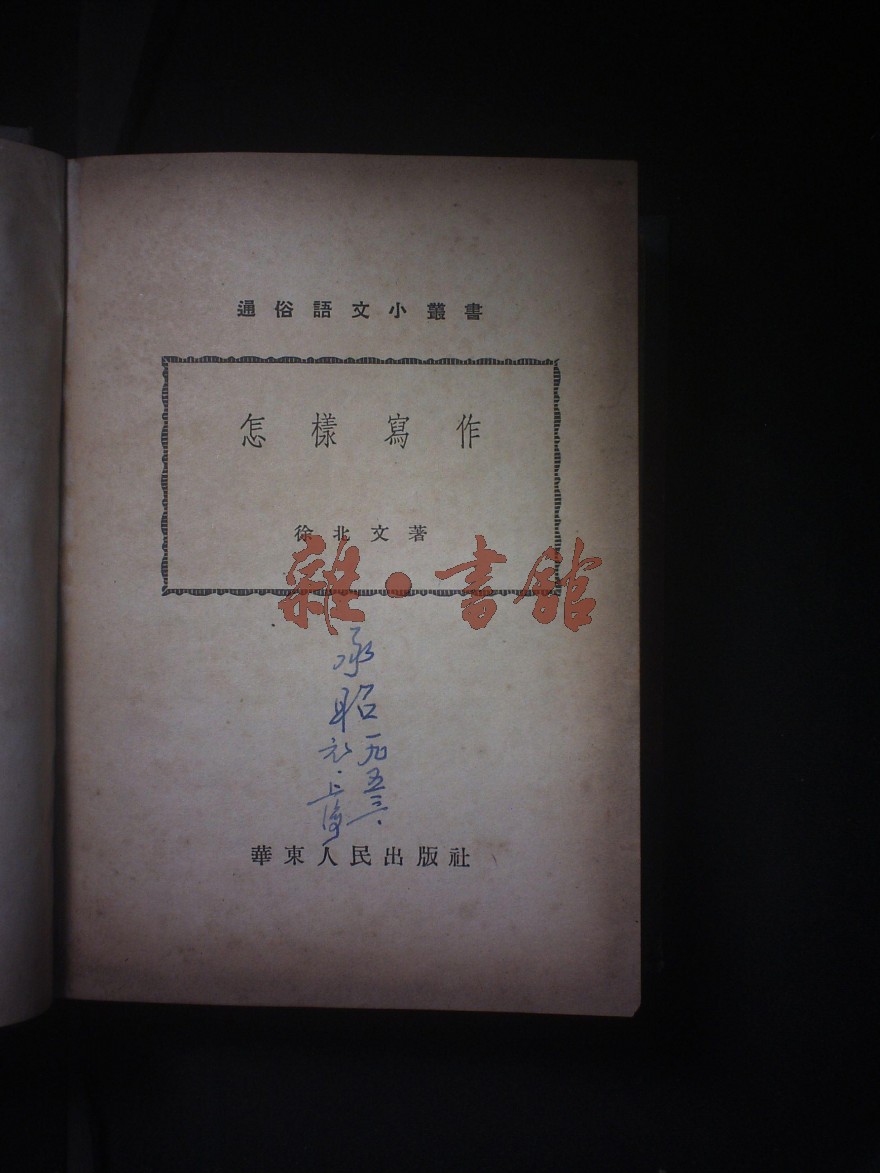 通俗語文小叢書
怎樣寫作
徐北文著
雜·書館
承昭
一九五三.
上海
華東人民出版社